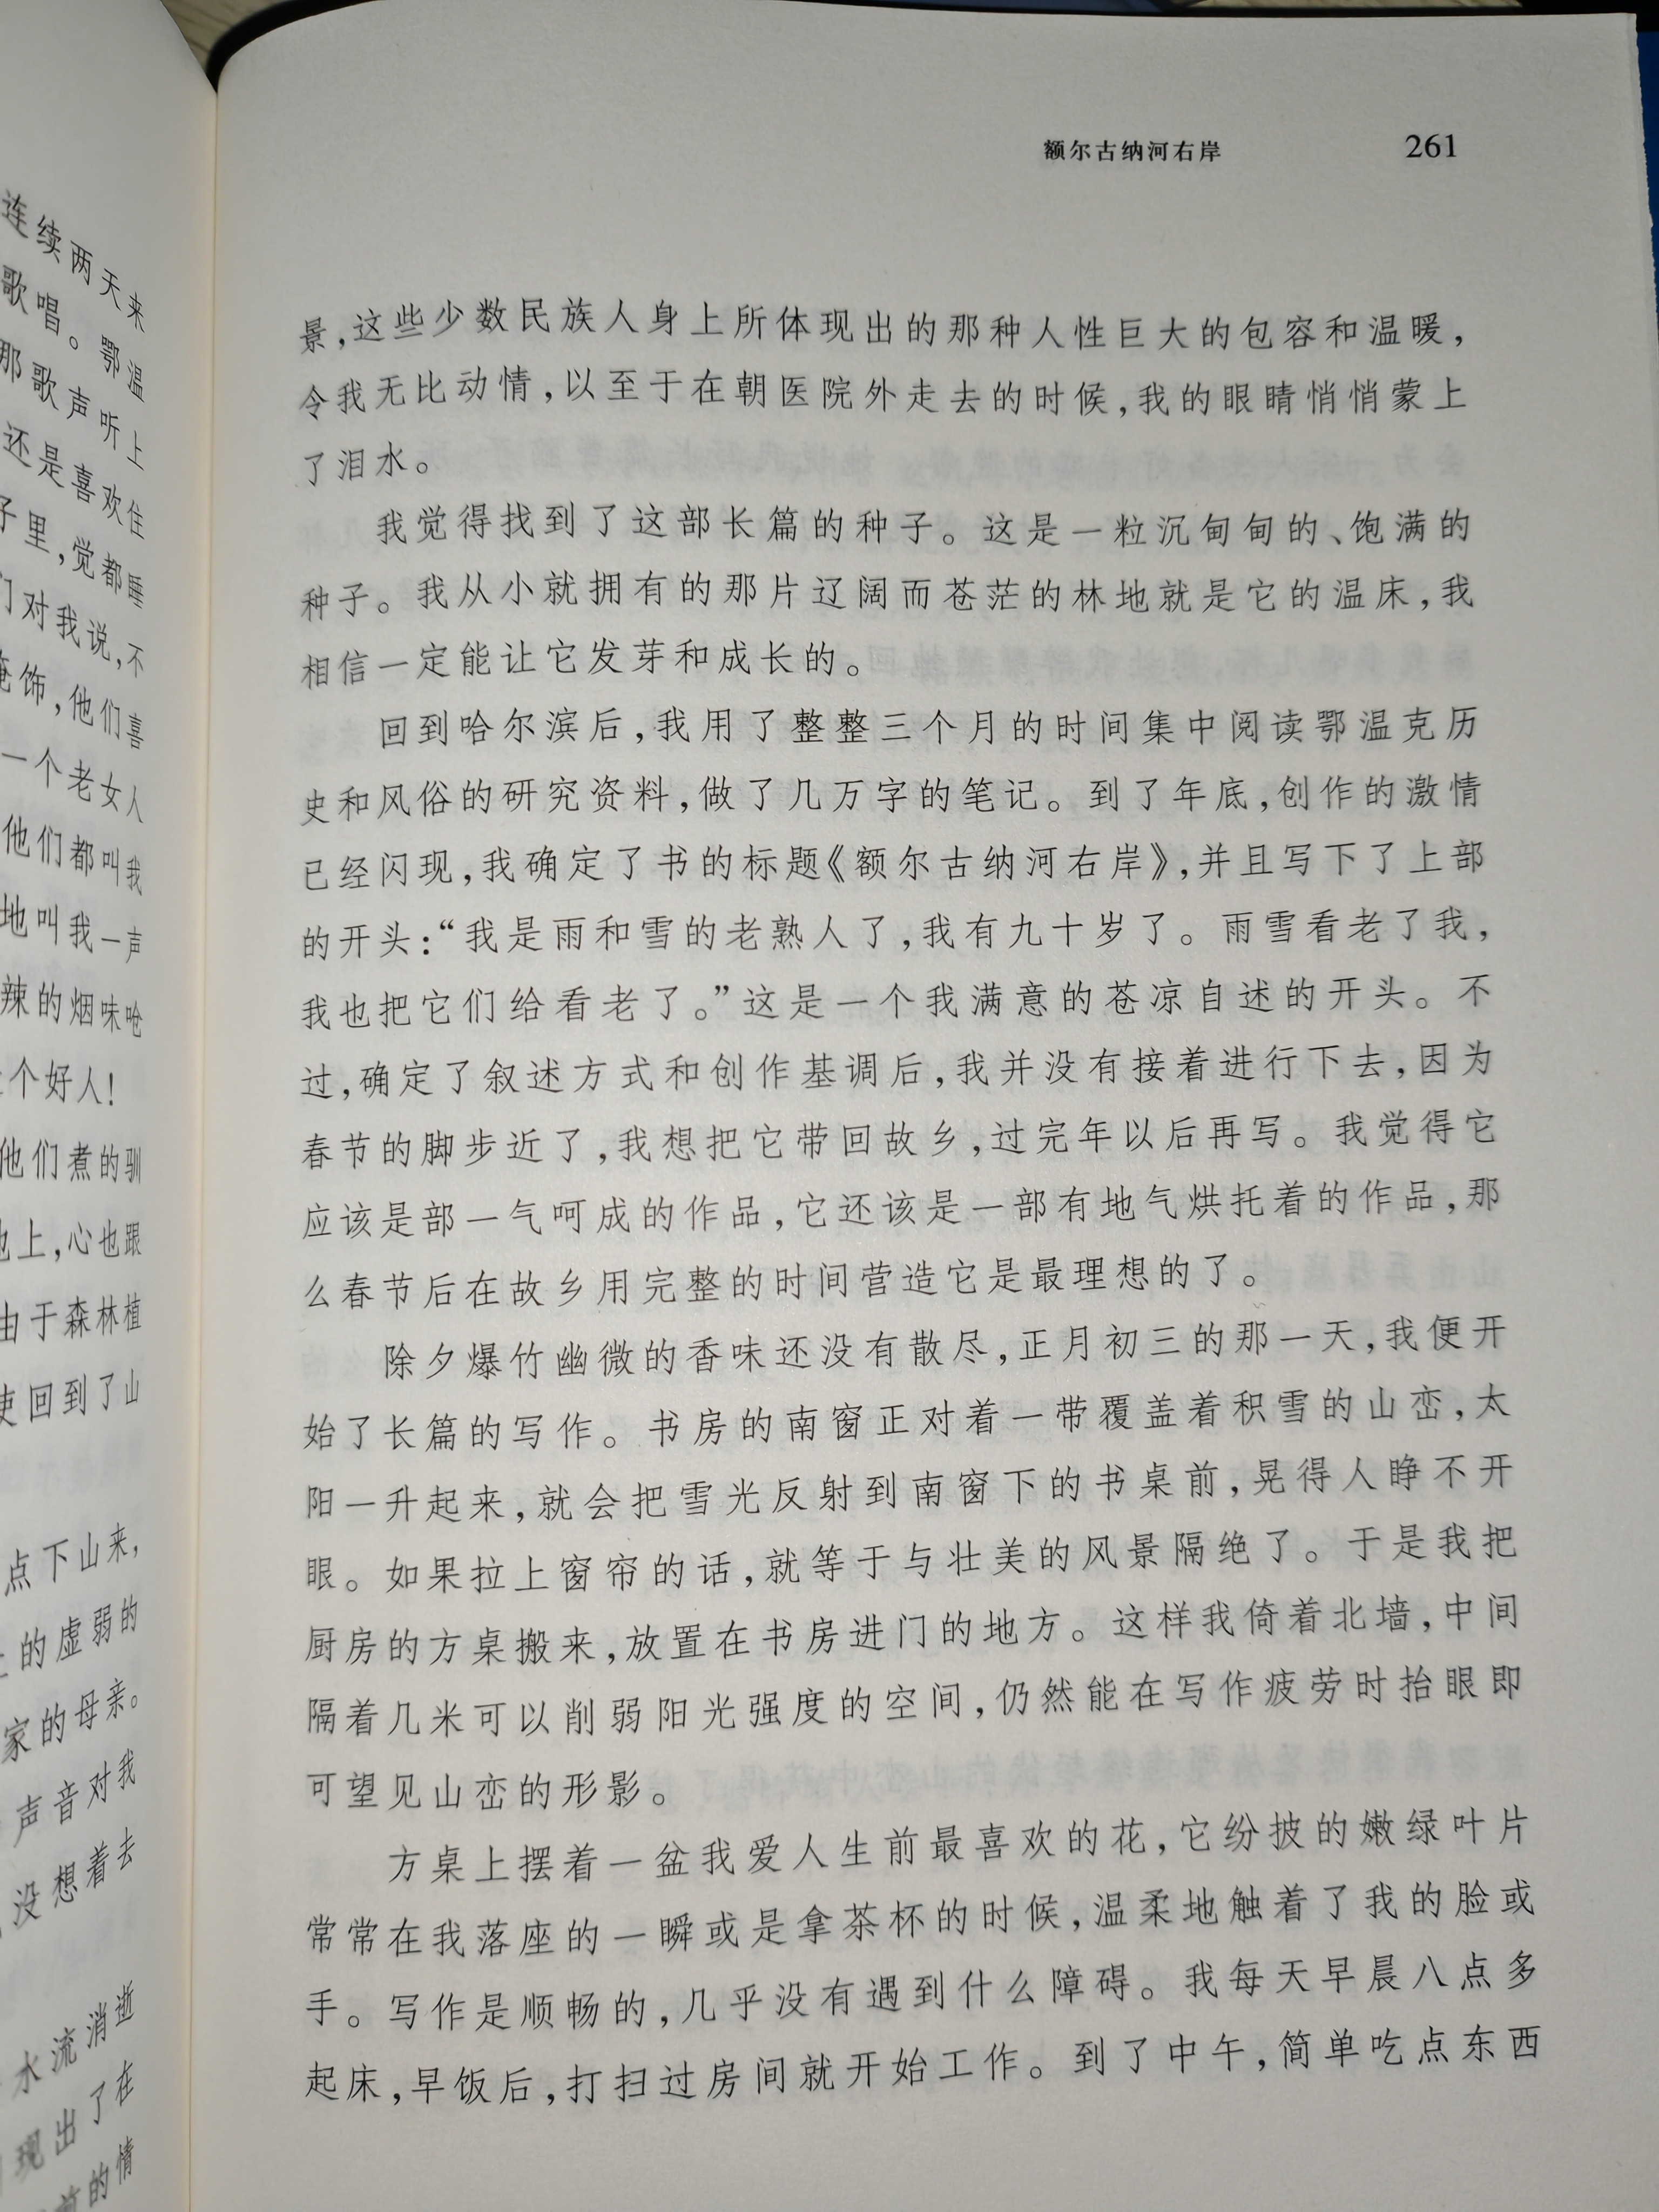 连续两天来
歌唱。鄂温
那歌声听上
还是喜欢住
子里，觉都睡
们对我说，不
饰，他们喜
一个老女人
他们都叫我
地叫我一声
辣的烟味呛
个好人！
他们煮的驯
地上，心也跟
由于森林植
回到了山
点下山来，
的虚弱的
家的母亲。
声音对我
没想着去
水流消逝
现出了在
的情
额尔古纳河右岸 261
景，这些少数民族人身上所体现出的那种人性巨大的包容和温暖，
令我无比动情，以至于在朝医院外走去的时候，我的眼睛悄悄蒙上
了泪水。
我觉得找到了这部长篇的种子。这是一粒沉甸甸的、饱满的
种子。我从小就拥有的那片辽阔而苍茫的林地就是它的温床，我
相信一定能让它发芽和成长的。
回到哈尔滨后，我用了整整三个月的时间集中阅读鄂温克历
史和风俗的研究资料，做了几万字的笔记。到了年底，创作的激情
已经闪现，我确定了书的标题《额尔古纳河右岸》，并且写下了上部
的开头：“我是雨和雪的老熟人了，我有九十岁了。雨雪看老了我，
我也把它们给看老了。”这是一个我满意的苍凉自述的开头。不
过，确定了叙述方式和创作基调后，我并没有接着进行下去，因为
春节的脚步近了，我想把它带回故乡，过完年以后再写。我觉得它
应该是部一气呵成的作品，它还该是一部有地气烘托着的作品，那
么春节后在故乡用完整的时间营造它是最理想的了。
除夕爆竹幽微的香味还没有散尽，正月初三的那一天，我便开
始了长篇的写作。书房的南窗正对着一带覆盖着积雪的山峦，太
阳一升起来，就会把雪光反射到南窗下的书桌前，晃得人睁不开
眼。如果拉上窗帘的话，就等于与壮美的风景隔绝了。于是我把
厨房的方桌搬来，放置在书房进门的地方。这样我倚着北墙，中间
隔着几米可以削弱阳光强度的空间，仍然能在写作疲劳时抬眼即
可望见山峦的形影。
方桌上摆着一盆我爱人生前最喜欢的花，它纷披的嫩绿叶片
常常在我落座的一瞬或是拿茶杯的时候，温柔地触着了我的脸或
手。写作是顺畅的，几乎没有遇到什么障碍。我每天早晨八点多
起床，早饭后，打扫过房间就开始工作。到了中午，简单吃点东西